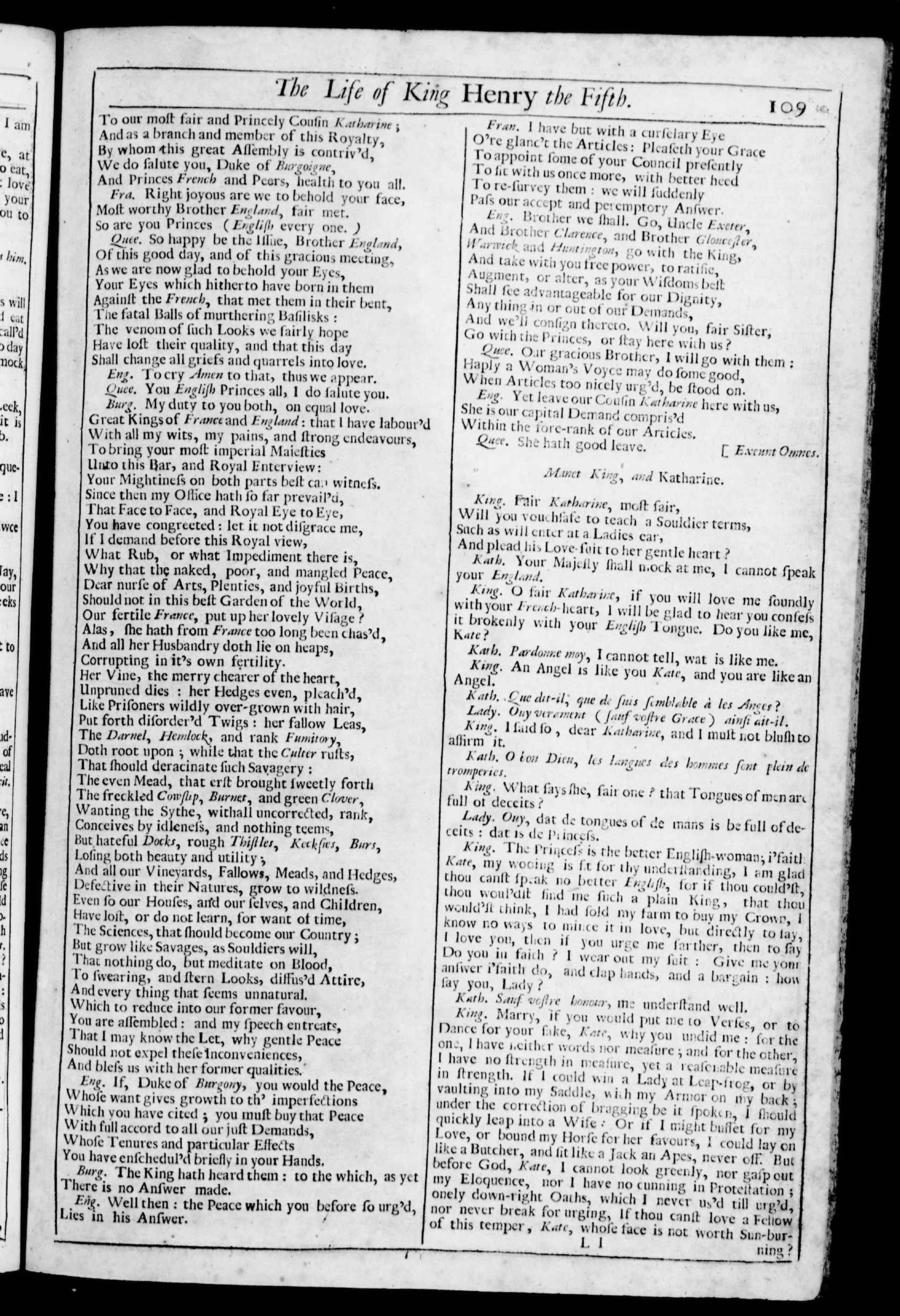 The Life of King Henry the Fifth. 109
To our moſt fair and Princely Couſin Katharine;
And as a branch and member of this Royalty,
By whom this great Aſſembly is contriv'd,
We do ſalute you, Duke of Burgoigne,
And Princes French and Peers, health to you all.
Fra. Right joyous are we to behold your face,
Moſt worthy Brother England, fair met.
So are you Princes (Engliſh every one.)
Quee. So happy be the Iſſue, Brother England,
Of this good day, and of this gracious meeting,
As we are now glad to behold your Eyes,
Your Eyes which hitherto have born in them
Againſt the French, that met them in their bent,
The fatal Balls of murthering Baſilisks:
The venom of ſuch Looks we fairly hope
Have loſt their quality, and that this day
Shall change all griefs and quarrels into love.
Eng. To cry Amen to that, thus we appear.
Quee. You Engliſh Princes all, I do ſalute you.
Burg. My duty to you both, on equal love.
Great Kings of France and England: that I have labour'd
With all my wits, my pains, and ſtrong endeavours,
To bring your moſt imperial Maieſties
Unto this Bar, and Royal Enterview:
Your Mightineſs on both parts beſt can witneſs.
Since then my Office hath ſo far prevail'd,
That Face to Face, and Royal Eye to Eye,
You have congreeted: let it not diſgrace me,
If I demand before this Royal view,
What Rub, or what Impediment there is,
Why that the naked, poor, and mangled Peace,
Dear nurſe of Arts, Plenties, and joyful Births,
Should not in this beſt Garden of the World,
Our fertile France, put up her lovely Viſage?
Alas, ſhe hath from France too long been chas'd,
And all her Husbandry doth lie on heaps,
Corrupting in it's own fertility.
Her Vine, the merry chearer of the heart,
Unpruned dies: her Hedges even, pleach'd,
Like Priſoners wildly over-grown with hair,
Put forth diſorder'd Twigs: her fallow Leas,
The Darnel, Hemlock, and rank Fumitory,
Doth root upon; while that the Culter ruſts,
That ſhould deracinate ſuch Savagery:
The even Mead, that erſt brought ſweetly forth
The freckled Cowſlip, Burnet, and green Clover,
Wanting the Sythe, withall uncorrected, rank,
Conceives by idleneſs, and nothing teems,
But hateful Docks, rough Thiſtles, Keckſies, Burs,
Loſing both beauty and utility;
And all our Vineyards, Fallows, Meads, and Hedges,
Defective in their Natures, grow to wildneſs.
Even ſo our Houſes, and our ſelves, and Children,
Have loſt, or do not learn, for want of time,
The Sciences, that ſhould become our Country;
But grow like Savages, as Souldiers will,
That nothing do, but meditate on Blood,
To ſwearing, and ſtern Looks, diffus'd Attire,
And every thing that ſeems unnatural.
Which to reduce into our former favour,
You are aſſembled: and my ſpeech entreats,
That I may know the Let, why gentle Peace
Should not expel theſe Inconveniences,
And bleſs us with her former qualities.
Eng. If, Duke of Burgony, you would the Peace,
Whoſe want gives growth to th' imperfections
Which you have cited; you muſt buy that Peace
With full accord to all our juſt Demands,
Whoſe Tenures and particular Effects
You have enſchedul'd briefly in your Hands.
Burg. The King hath heard them: to the which, as yet
There is no Anſwer made.
Eng. Well then: the Peace which you before ſo urg'd,
Lies in his Anſwer.
Fran. I have but with a curſelary Eye
O're glanc't the Articles: Pleaſeth your Grace
To appoint ſome of your Council preſently
To ſit with us once more, with better heed
To re-ſurvey them: we will ſuddenly
Paſs our accept and peremptory Anſwer.
Eng. Brother we ſhall. Go, Uncle Exeter,
And Brother Clarence, and Brother Gloucester,
Warwick and Huntington, go with the King,
And take with you free power, to ratifie,
Augment, or alter, as your Wiſdoms beſt
Shall ſee advantageable for our Dignity,
Any thing in or out of our Demands,
And we'll conſign thereto. Will you, fair Siſter,
Go with the Princes, or ſtay here with us?
Quee. Our gracious Brother, I will go with them:
Haply a Woman's Voyce may do ſome good,
When Articles too nicely urg'd, be ſtood on.
Eng. Yet leave our Couſin Katharine here with us,
She is our capital Demand compris'd
Within the fore-rank of our Articles.
Quee. She hath good leave. [Exeunt Omnes.
Manet King, and Katharine.
King. Fair Katharine, moſt fair,
Will you vouchſafe to teach a Souldier terms,
Such as will enter at a Ladies ear,
And plead his Love-ſuit to her gentle heart?
Kath. Your Majeſty ſhall mock at me, I cannot ſpeak
your England.
King. O fair Katharine, if you will love me ſoundly
with your French-heart, I will be glad to hear you confeſs
it brokenly with your Engliſh Tongue. Do you like me,
Kate?
Kath. Pardonne moy, I cannot tell, wat is like me.
King. An Angel is like you Kate, and you are like an
Angel.
Kath. Que dit-il, que de ſuis ſemblable à les Anges?
Lady. Ouy verament (ſauf voſtre Grace) ainſi dit-il.
King. I ſaid ſo, dear Katharine, and I muſt not bluſh to
affirm it.
Kath. O bon Dieu, les langues des hommes ſont plein de
tromperies.
King. What ſays ſhe, fair one? that Tongues of men are
full of deceits?
Lady. Ouy, dat de tongues of de mans is be full of de-
ceits: dat is de Princeſs.
King. The Princeſs is the better Engliſh-woman; i'faith
Kate, my wooing is fit for thy underſtanding, I am glad
thou canſt ſpeak no better Engliſh, for if thou could'ſt,
thou woul'dſt find me ſuch a plain King, that thou
would'ſt think, I had ſold my farm to buy my Crown, I
know no ways to mince it in love, but directly to ſay,
I love you, then if you urge me farther, then to ſay
Do you in faith? I wear out my ſuit: Give me your
anſwer i'faith do, and clap hands, and a bargain: how
ſay you, Lady?
Kath. Sauf voſtre honour, me underſtand well.
King. Marry, if you would put me to Verſes, or to
Dance for your ſake, Kate, why you undid me: for the
one, I have neither words nor meaſure; and for the other,
I have no ſtrength in meaſure, yet a reaſonable meaſure
in ſtrength. If I could win a Lady at Leap-frog, or by
vaulting into my Saddle, with my Armor on my back;
under the correction of bragging be it ſpoken, I ſhould
quickly leap into a Wife: Or if I might buffet for my
Love, or bound my Horſe for her favours, I could lay on
like a Butcher, and ſit like a Jack an Apes, never off. But
before God, Kate, I cannot look greenly, nor gaſp out
my Eloquence, nor I have no cunning in Proteſtation;
onely down-right Oaths, which I never us'd till urg'd,
nor never break for urging, If thou canſt love a Fellow
of this temper, Kate, whoſe face is not worth Sun-bur-
L l ning?